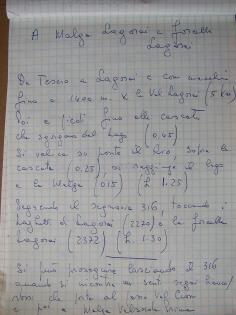 A Malga Lagorai e Forcella
Lagorai
Da Tesero a Lagorai e con macchina
fino a 1400 m. x la Val Lagorai (5 Km)
Poi a piedi fino alle cascate
che sgorgano dal lago (0,45)
Si valica su ponte il rivo, sopra le
cascate (0,25), poi raggiunge il lago
e la Malga (0,15) (h. 1.25)
Seguendo il segnavia 316, toccando i
laghetti di Lagorai (2270) e la forcella
Lagorai (2372) (h. 1.30)
Si può proseguire lasciando il 316
quando si incontra un sent. segni bianco/
rossi che porta al passo Val Cion
e poi a Malga